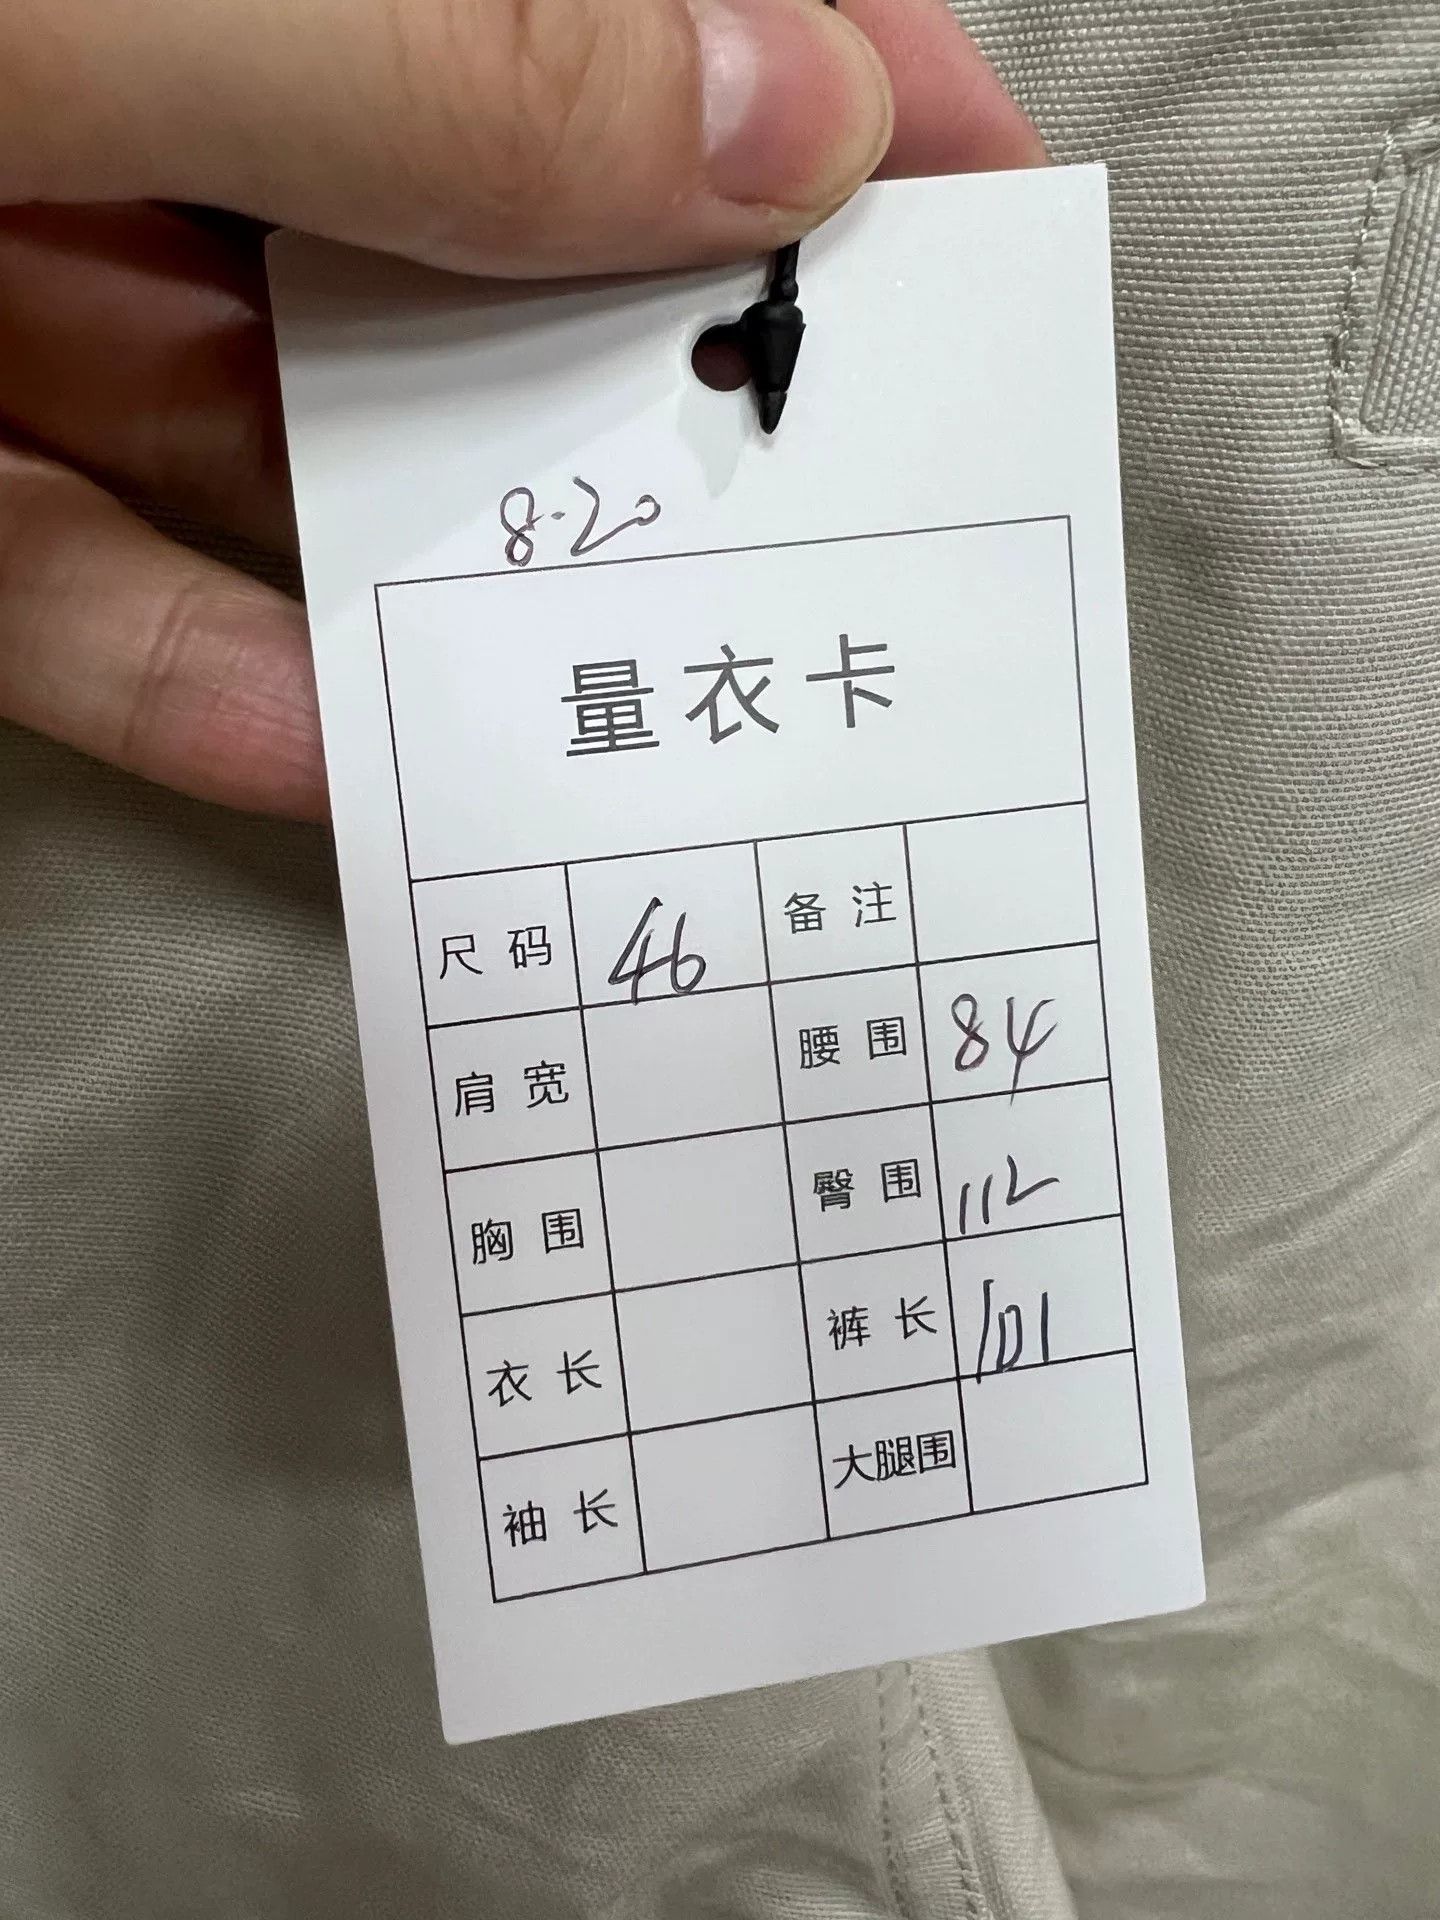 8.20
量衣卡
尺码 46 备注
肩宽 腰围 84
胸围 臀围 112
衣长 裤长 101
袖长 大腿围